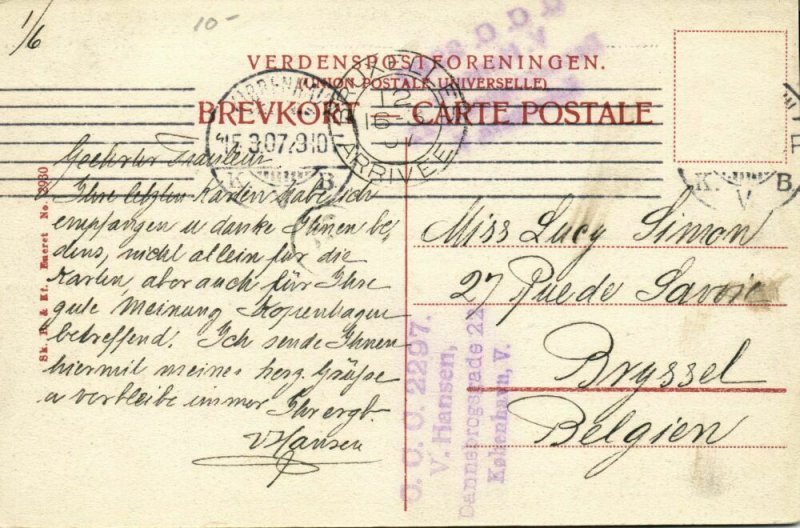 1/6
10-
VERDENSPOSTFORENINGEN.
(UNION POSTALE UNIVERSELLE)
BREVKORT — CARTE POSTALE
KJØBENHAVN
15.3.07. 9-10 F
K. B.
V
BRUXELLES
12
16
ARRIVÉE
K. B.
V
Geehrter Fräulein
Ihre letzten Karten habe ich
empfangen u danke Ihnen bes
dens, nicht allein für die
Karten, aber auch für Ihre
gute Meinung Kopenhagen
betreffend. Ich sende Ihnen
hiermit meines herz. Grüsse
u verbleibe immer Ihr ergb.
VHansen
Miss Lucy Simon
27 Rue de Savoie
Bryssel
Belgien
C. C. C. 2297.
V. Hansen,
Dannebrogsgade 22
København, V.
Eneret No. 2930